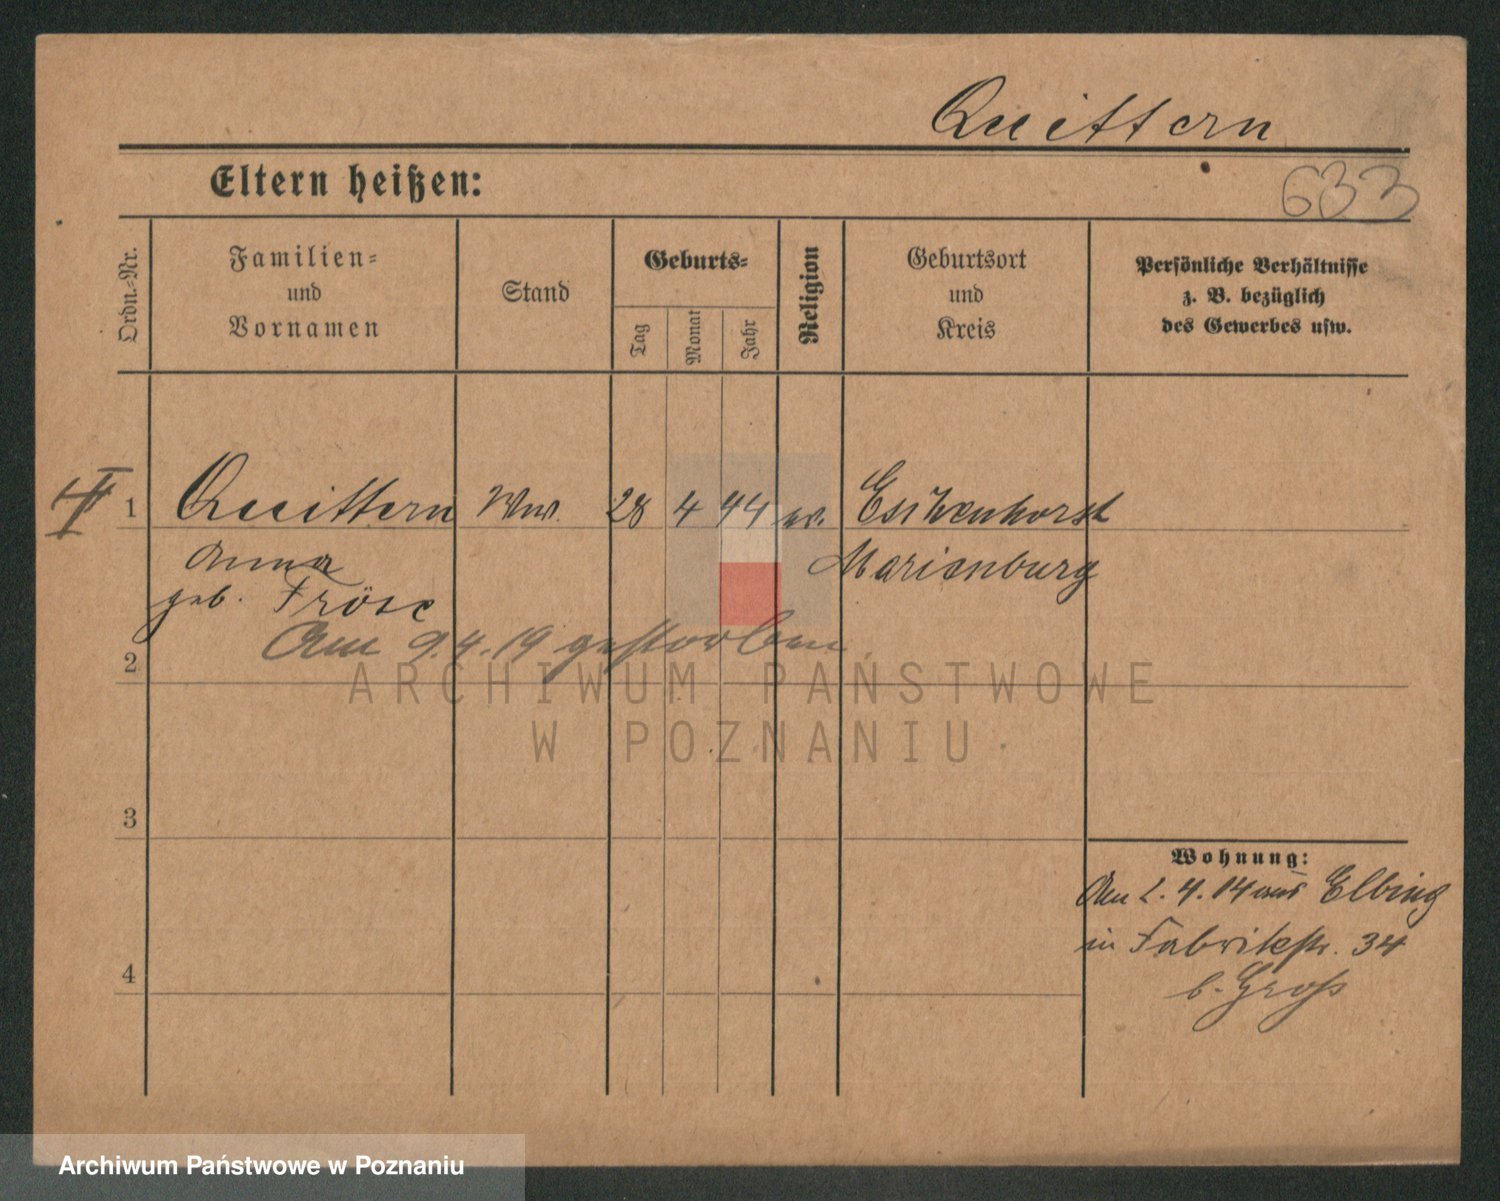 Quittern
Eltern heißen:
633
Ordn.-Nr.
Familien-
und
Vornamen
Stand
Geburts-
Tag
Monat
Jahr
Religion
Geburtsort
und
Kreis
Persönliche Verhältnisse
z. B. bezüglich
des Gewerbes usw.
1 Quittern Ww. 28 4 44 ev. Eschenhorst
Anna Marienburg
geb. Fröse
Am 9.4.19 gestorben
2
ARCHIWUM PAŃSTWOWE
W POZNANIU
3
Wohnung:
Am 2.4.14 aus Elbing
in Fabrikstr. 34
4
b. Groß
Archiwum Państwowe w Poznaniu